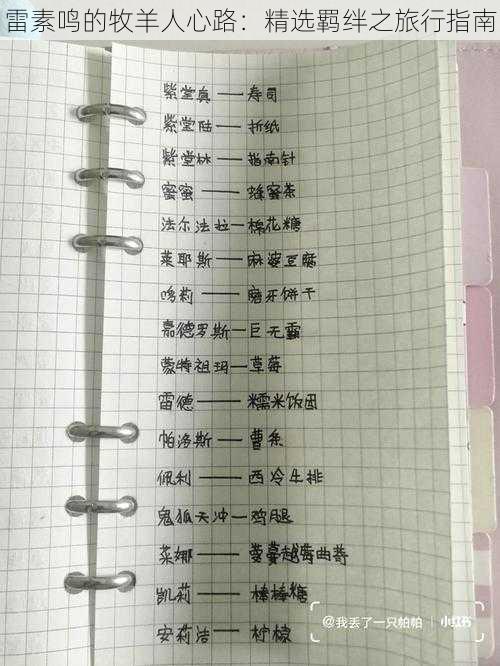 雷素鸣的牧羊人心路：精选羁绊之旅行指南
紫堂真——寿司
紫堂陆——折纸
紫堂林——指南针
蜜蜜——蜂蜜茶
法尔法拉—棉花糖
莱耶斯——麻婆豆腐
鸣莉——磨牙饼干
嘉德罗斯—巨无霸
蒙特祖玛—草莓
雷德——糯米饭团
帕洛斯——薯条
佩利——西冷牛排
鬼狐天冲—鸡腿
莱娜——蔓越莓曲奇
凯莉——棒棒糖
安莉洁——柠檬
@我丢了一只帕帕 | 小红书